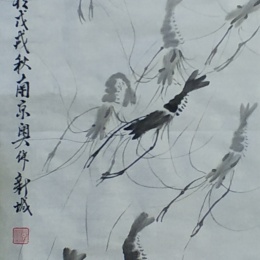 戊戌秋南京奥体新城